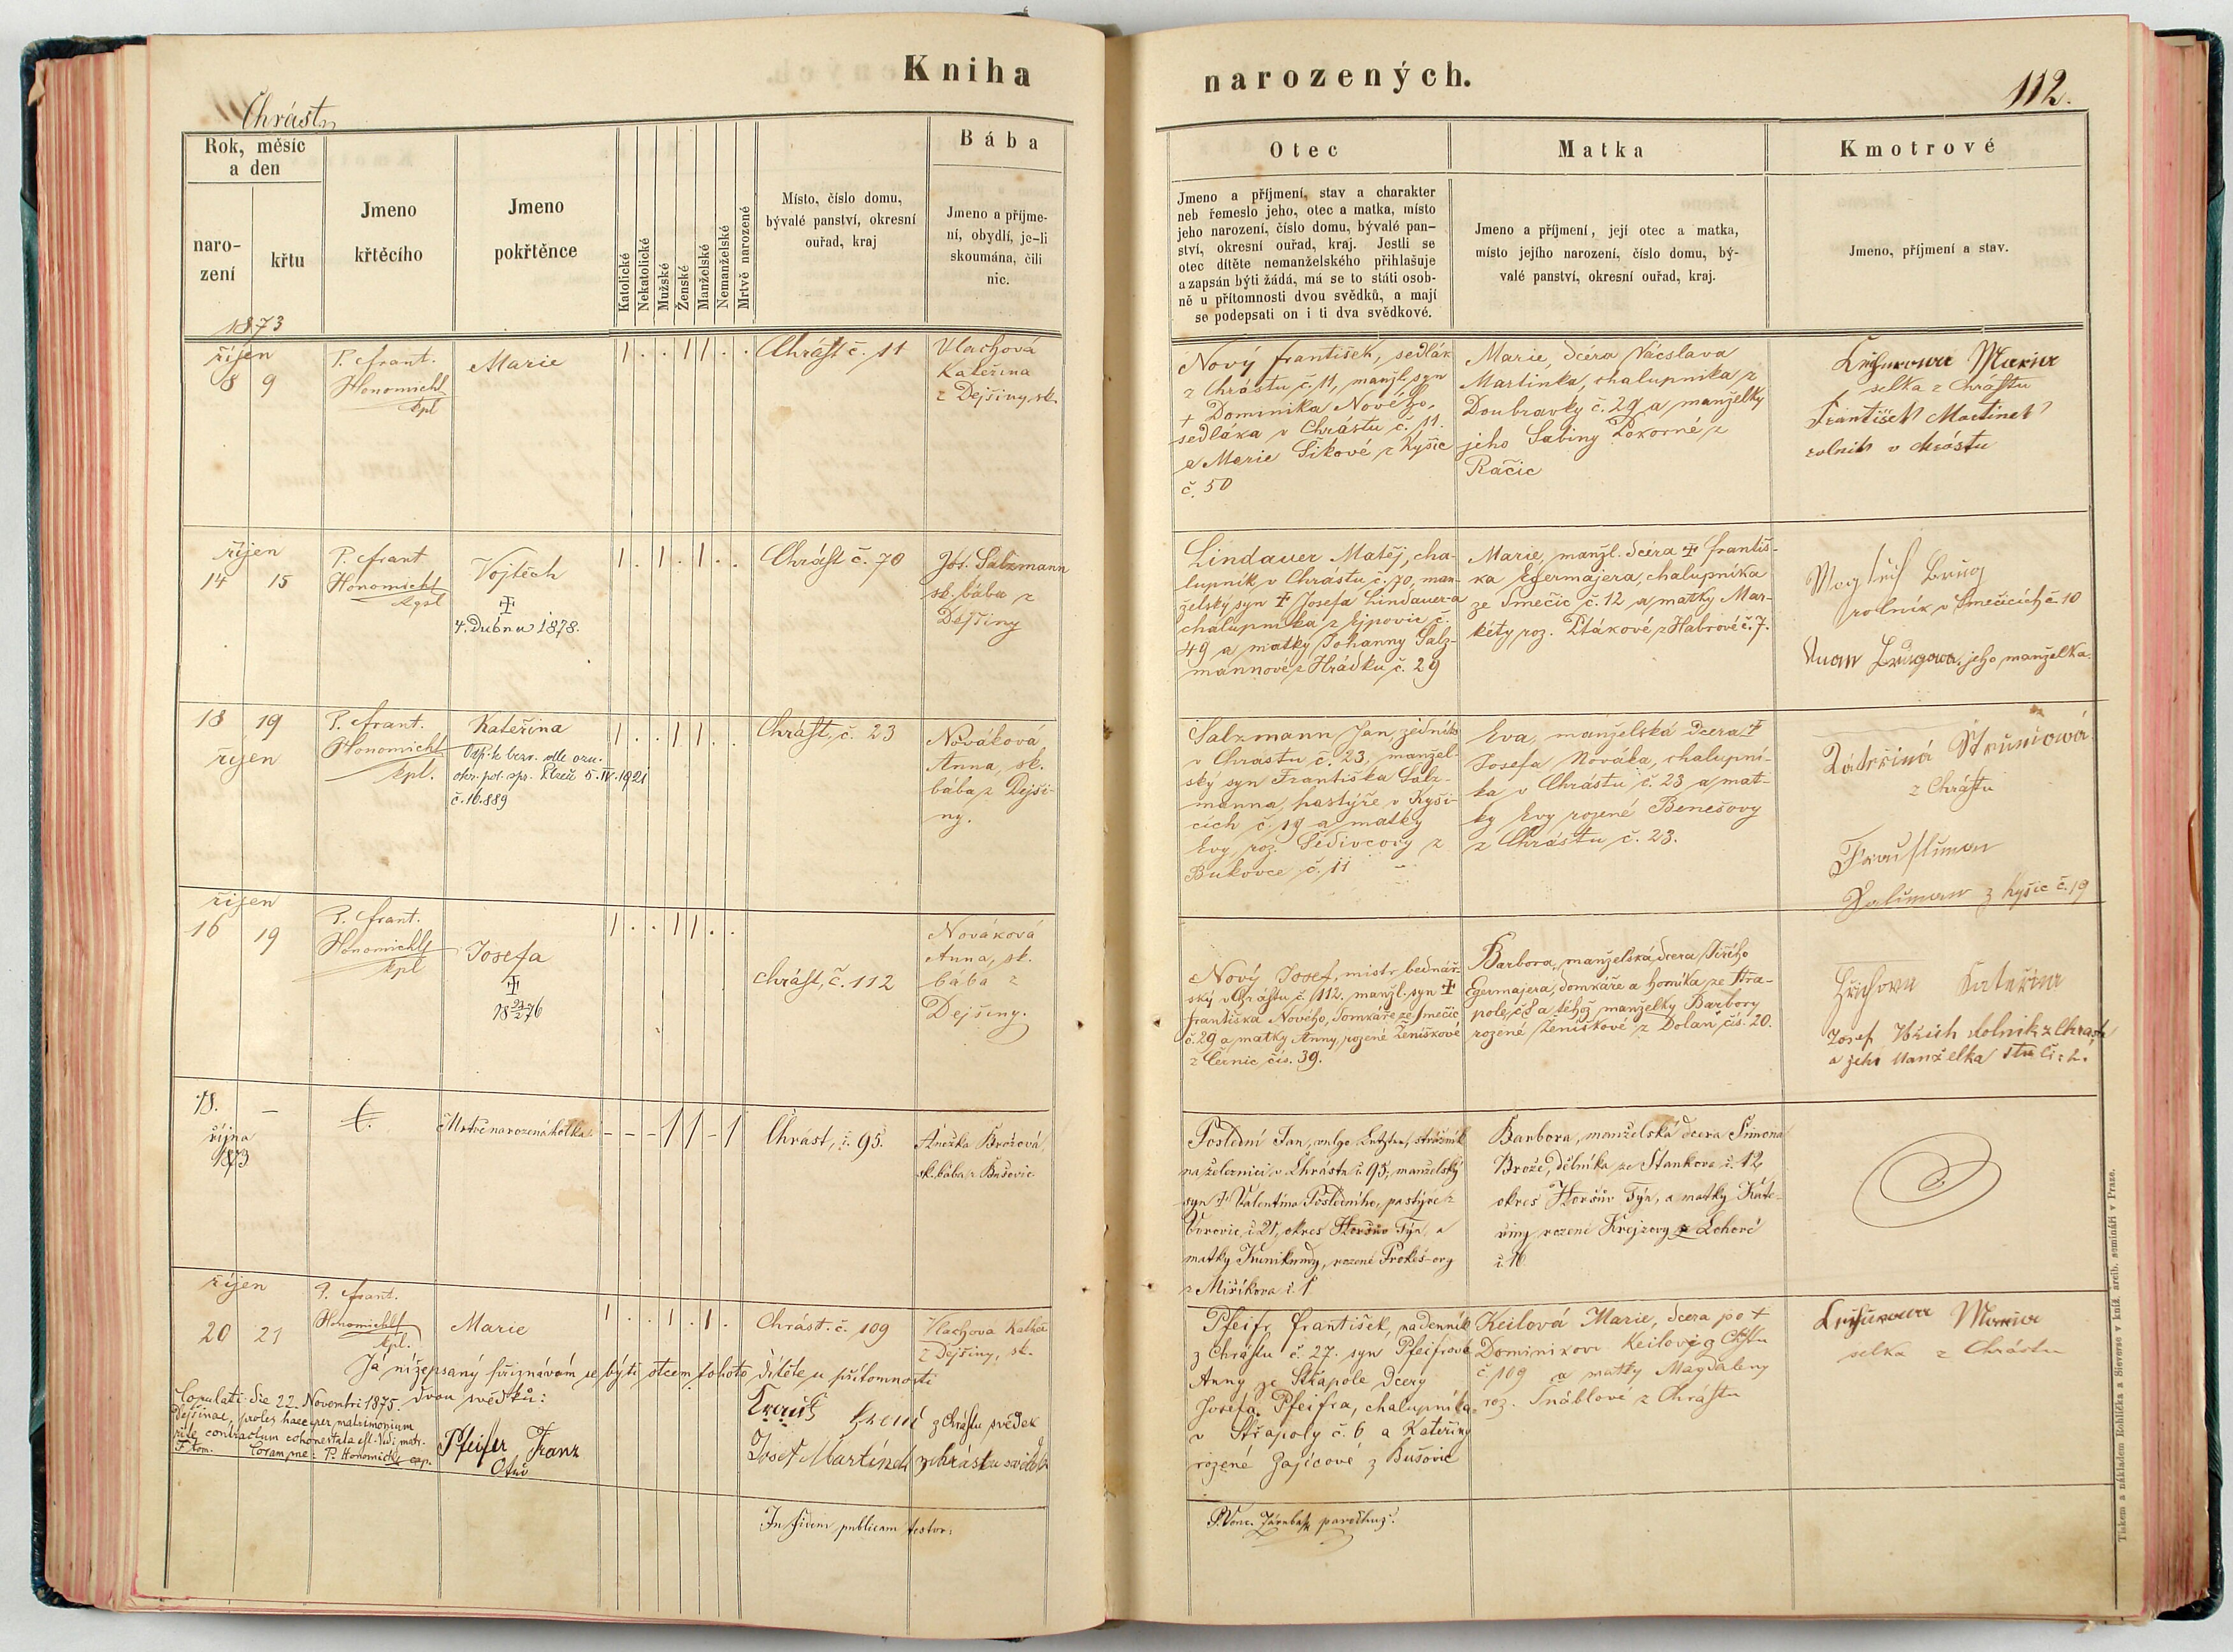 Kniha
narozených.
112.
Chrást
Rok, měsíc
a den
naro-
zení
křtu
Jmeno
křtěcího
Jmeno
pokřtěnce
Katolické
Nekatolické
Mužské
Ženské
Manželské
Nemanželské
Mrtvě narozené
Místo, číslo domu,
bývalé panství, okresní
ouřad, kraj
Bába
Jmeno a příjme-
ní, obydlí, je-li
skoumána, čili
nic.
Otec
Jmeno a příjmení, stav a charakter
neb řemeslo jeho, otec a matka, místo
jeho narození, číslo domu, bývalé pan-
ství, okresní ouřad, kraj. Jestli se
otec dítěte nemanželského přihlašuje
a zapsán býti žádá, má se to státi osob-
ně u přítomnosti dvou svědků, a mají
se podepsati on i ti dva svědkové.
Matka
Jmeno a příjmení, její otec a matka,
místo jejího narození, číslo domu, bý-
valé panství, okresní ouřad, kraj.
Kmotrové
Jmeno, příjmení a stav.
1873
říjen
8 9
P. Frant.
Honomichl
kpl
Marie
1 . . 1 1 . .
Chrást č. 11
Vlachová
Kateřina
z Dejšiny, sk.
Nový František, sedlák
z Chrástu č. 11, manžl. syn
+ Dominika Nového,
sedláka v Chrástu č. 11.
a Marie Šikové z Kyšic
č. 50
Marie, dcéra Václava
Martinka, chalupníka z
Doubravky č. 29 a manželky
jeho Sabiny Pokorné z
Račic
Marie
selka z Chrástu
František Martinek
rolník v Chrástu
říjen
14 15
P. Frant
Honomichl
kpl
Vojtěch
‡
4. Dubna 1878.
1 . 1 . 1 . .
Chrást č. 70
Jos. Salzmann
sk. bába z
Dejšiny
Lindauer Matěj, cha-
lupník v Chrástu č. 70, man-
želský syn ‡ Josefa Lindauer-a
chalupníka z Ejpovic č.
49 a matky Johanny Salz-
mannové z Hrádku č. 29
Marie, manžl. dcéra ‡ Františ-
ka Egermajera, chalupníka
ze Smečic č. 12 a matky Mar-
kéty roz. Ptákové z Habrové č. 7.
rolník v Smečicích č. 10
jeho manželka.
18 19
říjen
P. Frant.
Honomichl
kpl.
Kateřina
Odp. k bezv. dle ozn.
okr. pol. spr. Plzeň 5. IV. 1921
č. 16.889
1 . . 1 1 . .
Chrást, č. 23
Nováková
Anna, sk.
bába z Dejši-
ny.
Salzmann Jan, zedník
v Chrástu č. 23, manžel-
ský syn Františka Salz-
manna, pastýře v Kyši-
cích č. 19 a matky
Evy, roz. Šedivcovy z
Bukovce č. 11
Eva, manželská dcera ‡
Josefa Nováka, chalupní-
ka v Chrástu č. 23 a mat-
ky Evy rozené Benešovy
z Chrástu č. 23.
z Chrástu
z Kyšic č. 19
říjen
16 19
P. Frant.
Honomichl
kpl
Josefa
‡
18 23/2 76
1 . . 1 1 . .
Chrást, č. 112
Nováková
Anna, sk.
bába z
Dejšiny.
Nový Josef, mistr bednář-
ský v Chrástu č. 112. manžl. syn ‡
Františka Nového, domkáře ze Smečic
č. 29 a matky Anny, rozené Ženíškové
z Černic čís. 39.
Barbora, manželská dcera Jiřího
Egermajera, domkáře a horníka ze Stra-
pole, č. 8 a téhož manželky Barbory
rozené Ženíškové z Dolan čís. 20.
Kateřina
Josef rolník z Chrást
a jeho manželka
18.
října
1873
—
Mrtvě narozená holka
- - - 1 1 - 1
Chrást, č. 95.
Anežka Brožová,
sk. bába z Bušovic.
Poslední Jan, vulgo Letzter, strážník
na železnici v Chrástu č. 95, manželský
syn + Valentina Posledního, pastýře z
č. 21, okres Horšův Týn, a
matky Kunikundy, rozené Prokeš-ovy
z Miříkova č. 1
Barbora, manželská dcera Šimona
Brože, dělníka ze Stankova č. 12,
okres Horšův Týn, a matky Kate-
řiny rozené Krejzovy z Lohové
č. 16
říjen
20 21
P. Frant.
Honomichl
kpl.
Marie
1 . . 1 . 1 .
Chrást č. 109
Vlachová Katka
z Dejšiny, sk.
Já nížepsaný přiznávám se býti otcem tohoto dítěte u přítomnosti
dvou svědků:
Copulati die 22. Novembri 1875.
Dejšinae, proles haec per matrimonium
rite contractum cohonestata est. Vidi matr.
F. tom. Coram me: P. Honomichl cap.
Pfeifer Franz
Otec
z Chrástu svědek
Josef Martínek z Chrástu svědek
Pfeifr František, nadenník
z Chrástu č. 27. syn Pfeifrové
Anny ze Střapole dcery
Josefa Pfeifra, chalupníka
v Střapoly č. 6 a Kateřiny
rozené Zajícové z Bušovic
Keilová Marie, dcera po +
Dominikovi Keilovi z Chrástu
č. 109 a matky Magdaleny
roz. Šnáblové z Chrástu
Marie
selka z Chrástu
In fidem publicam testor:
P. Venc. Zárubašk parochus.
Tiskem a nákladem Rohlíčka a Sieverse v kníž. arcib. semináři v Praze.